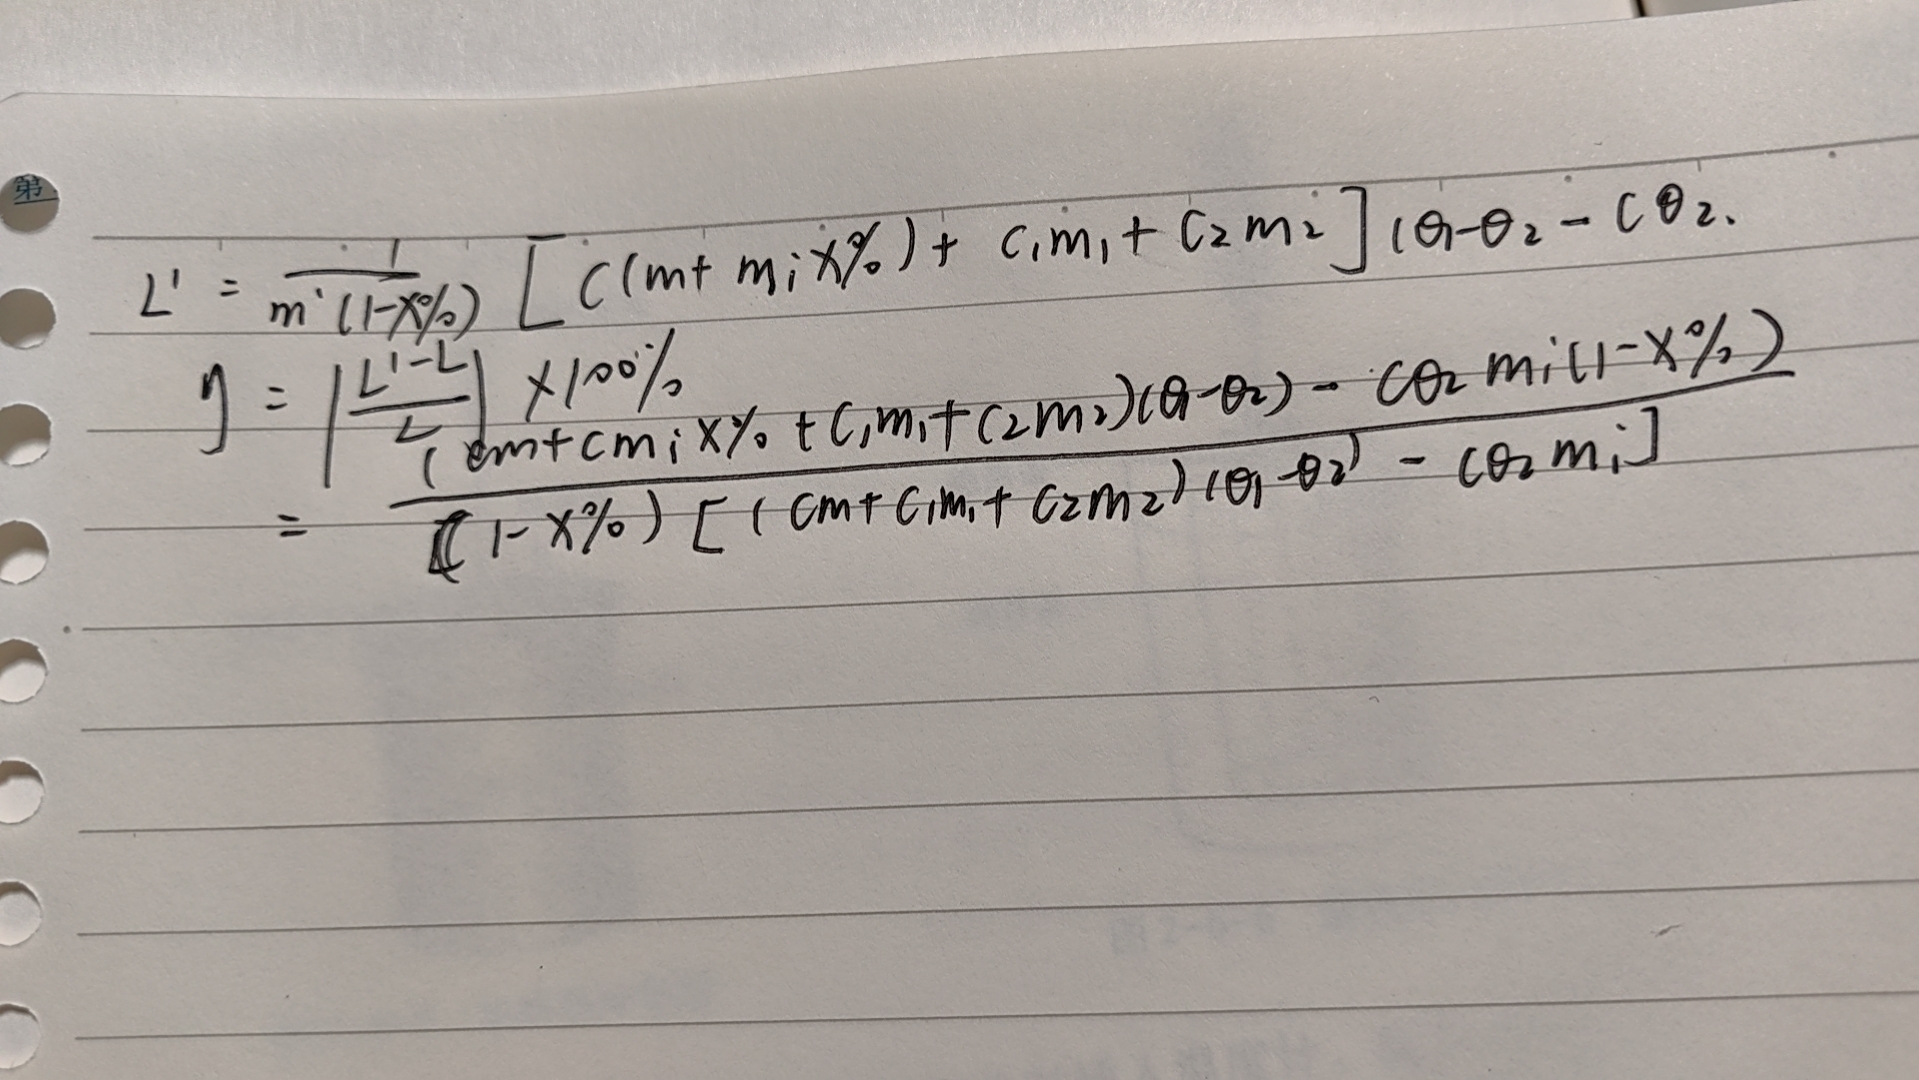 第
L' = 1/m i(1-X%) [C(m+ m i X%)+ C₁m₁+ C₂m₂] (θ₁-θ₂ - Cθ₂.
η = |L'-L/L| ×100%
= (cm+cm i X% +C₁m₁+C₂m₂)(θ₁-θ₂) - Cθ₂ m i(1-X%)/(1-X%) [(Cm+C₁m₁+C₂m₂)(θ₁-θ₂) - Cθ₂ m i]